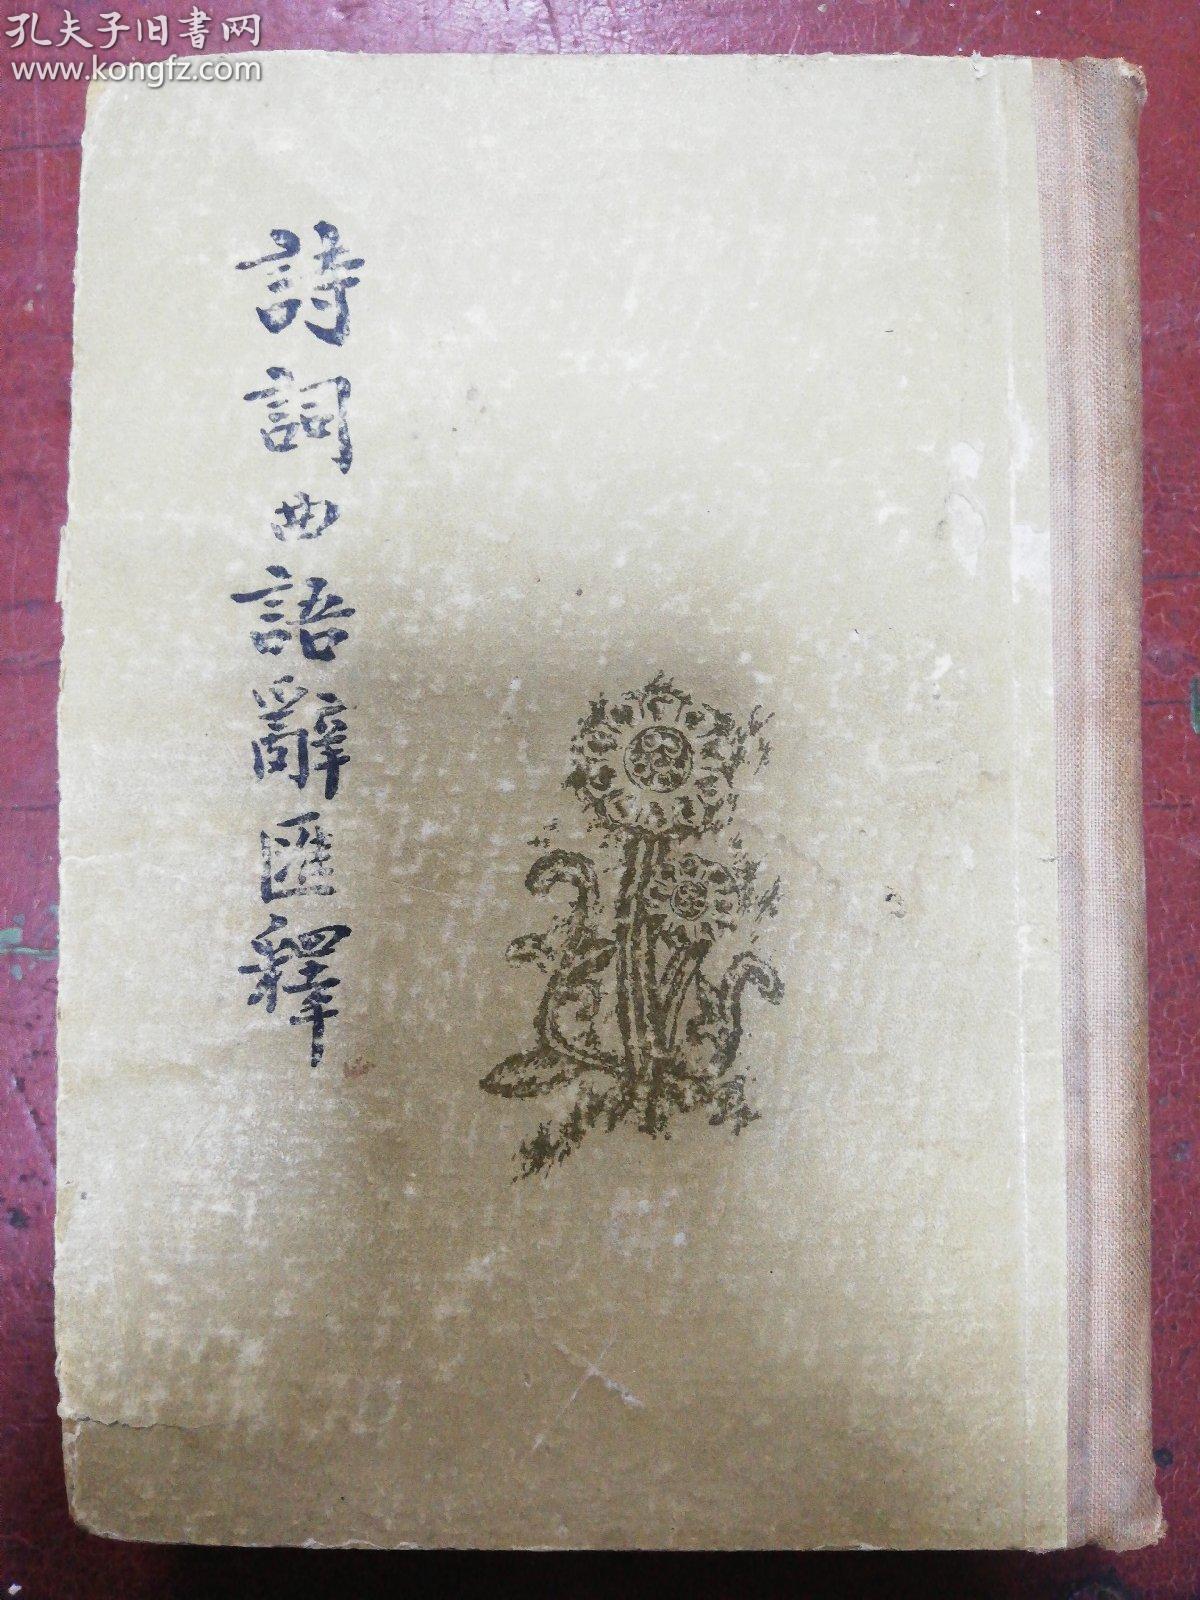 孔夫子旧書网
www.kongfz.com
詩詞曲語辭匯釋